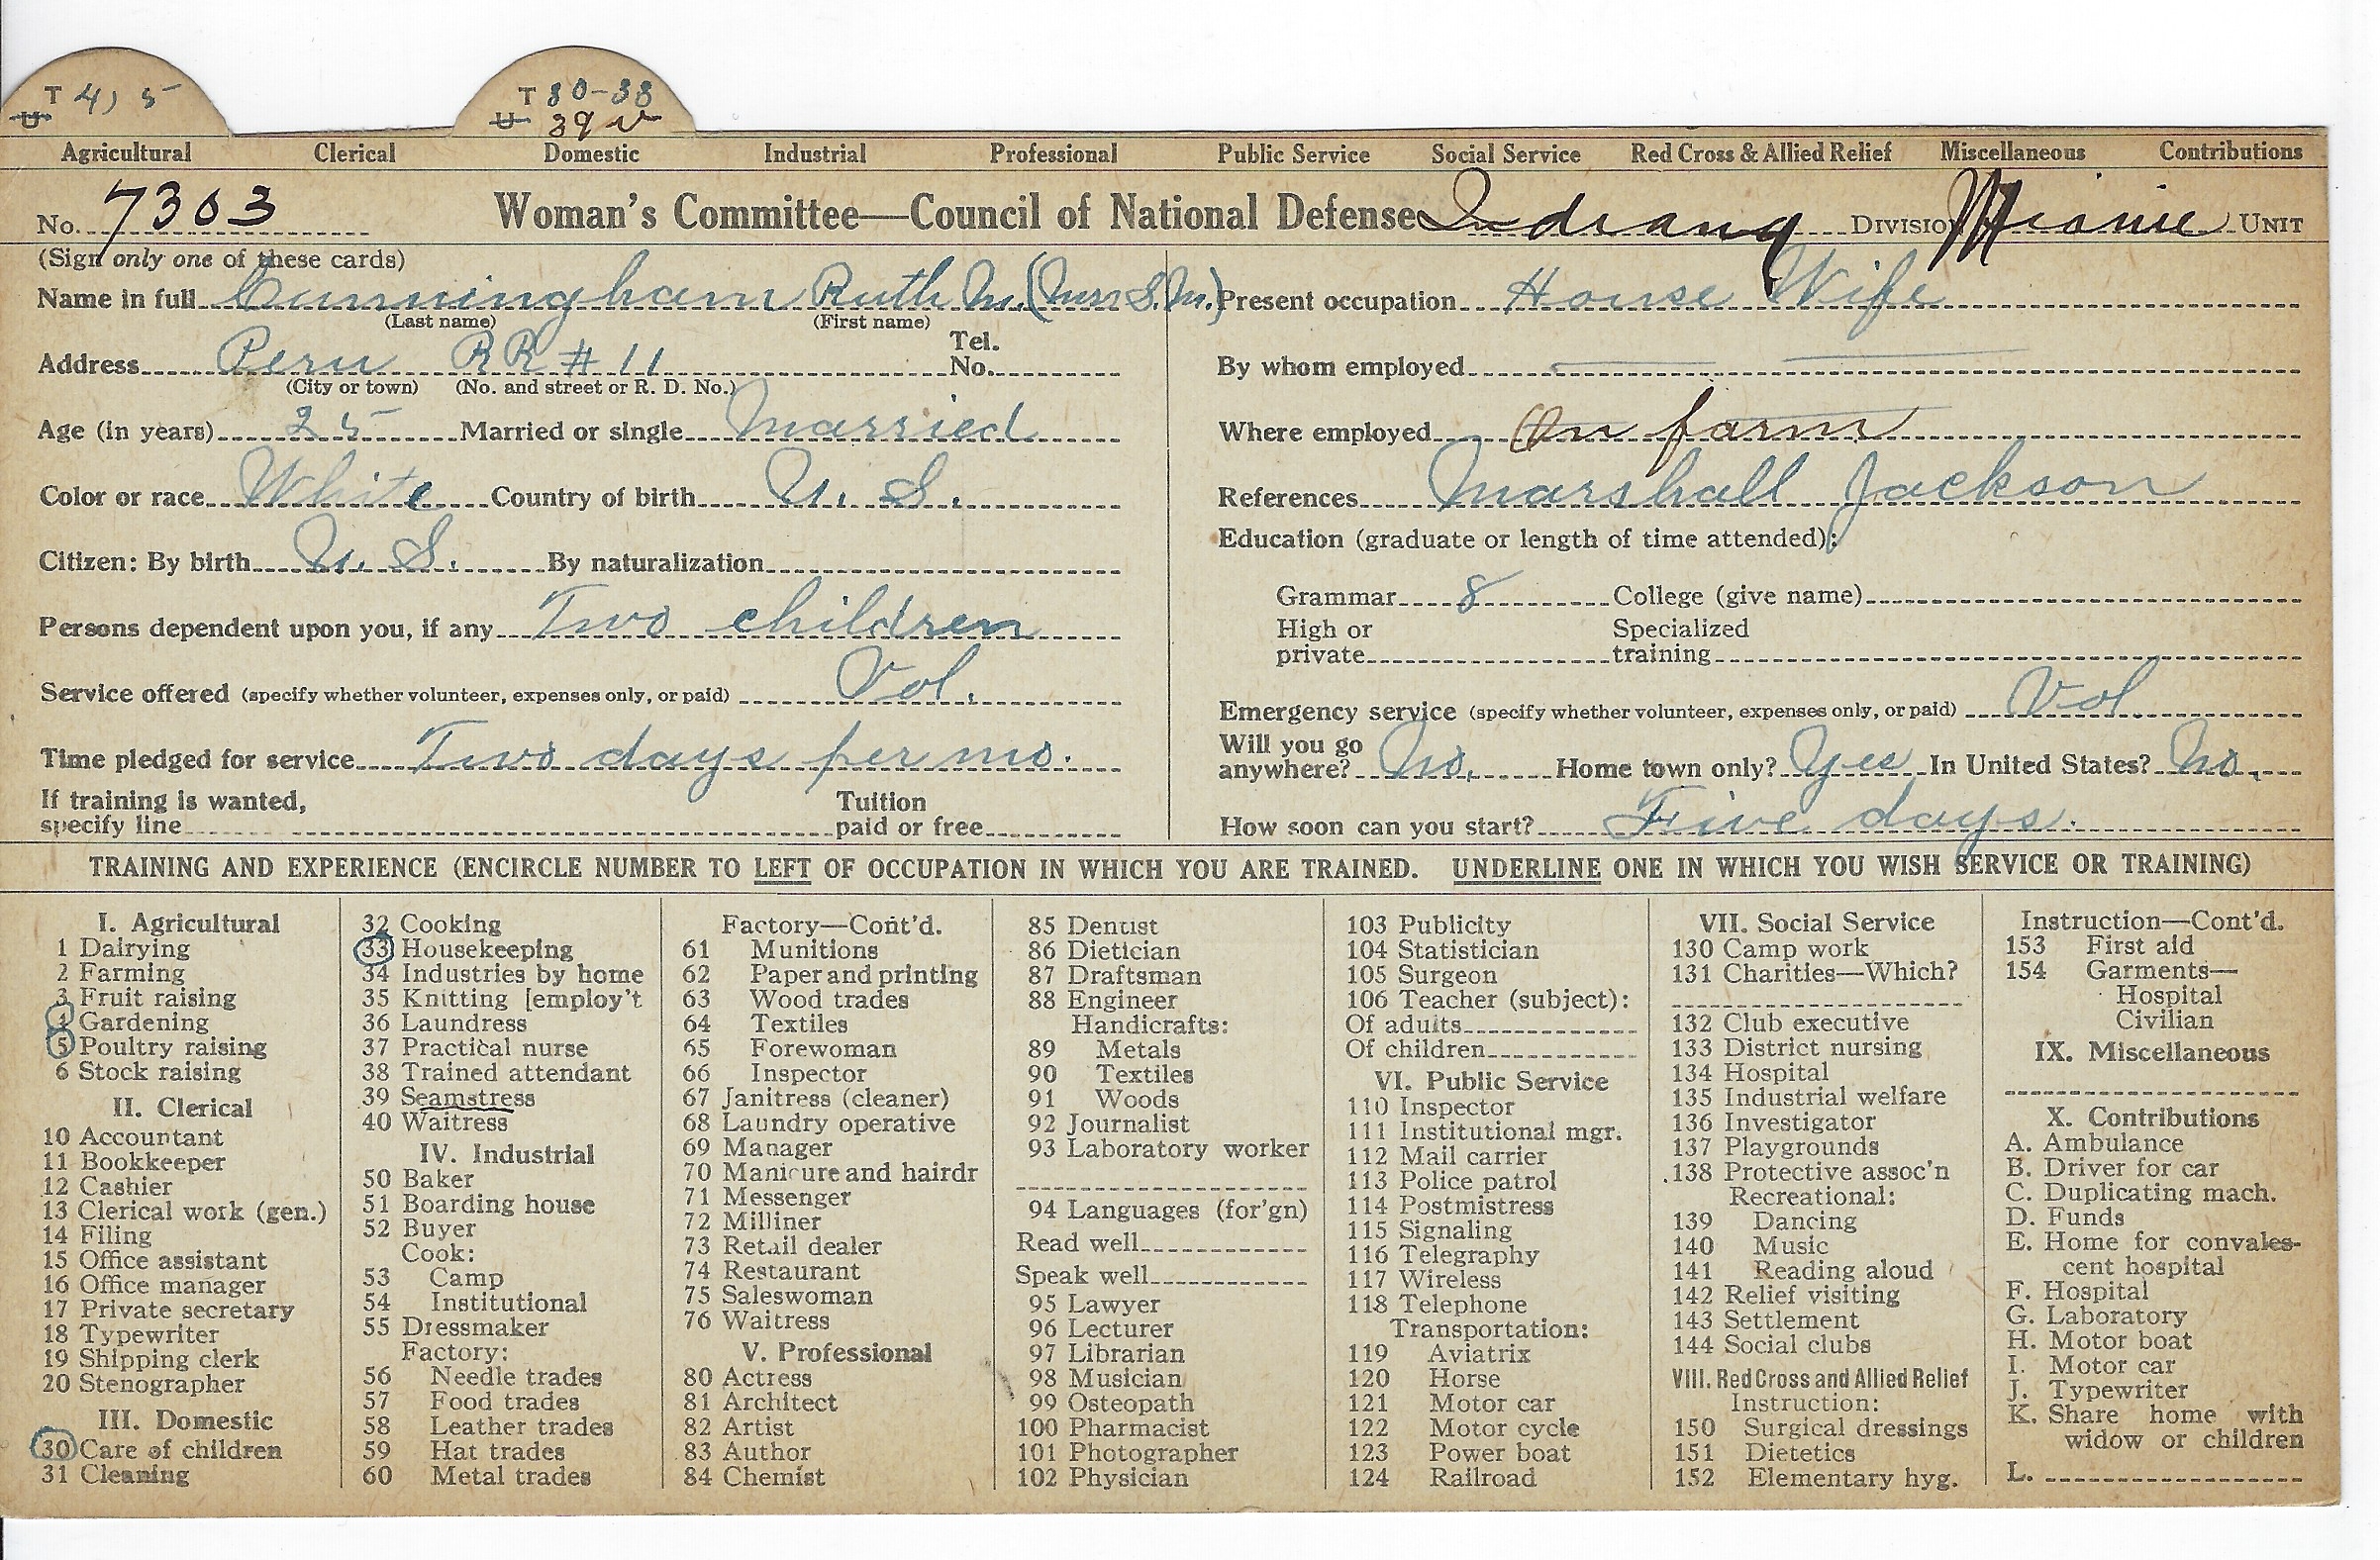 T 4, 5
U
T 30-33
U 39 v
Agricultural Clerical Domestic Industrial Professional Public Service Social Service Red Cross & Allied Relief Miscellaneous Contributions
No. 7303 Woman's Committee—Council of National Defense Indiana DIVISION Miami UNIT
(Sign only one of these cards)
Name in full Cunningham Ruth M. (Mrs S.M.)
(Last name) (First name)
Address Peru RR # 11 Tel. No.
(City or town) (No. and street or R. D. No.)
Age (in years) 25 Married or single Married
Color or race White Country of birth U. S.
Citizen: By birth U. S. By naturalization
Persons dependent upon you, if any Two children
Service offered (specify whether volunteer, expenses only, or paid) Vol.
Time pledged for service Two days per mo.
If training is wanted, specify line Tuition paid or free
Present occupation House Wife
By whom employed
Where employed On farm
References Marshall Jackson
Education (graduate or length of time attended):
Grammar 8 College (give name)
High or private Specialized training
Emergency service (specify whether volunteer, expenses only, or paid) Vol
Will you go anywhere? No. Home town only? Yes In United States? No.
How soon can you start? Five days.
TRAINING AND EXPERIENCE (ENCIRCLE NUMBER TO LEFT OF OCCUPATION IN WHICH YOU ARE TRAINED. UNDERLINE ONE IN WHICH YOU WISH SERVICE OR TRAINING)
I. Agricultural
1 Dairying
2 Farming
3 Fruit raising
4 Gardening
5 Poultry raising
6 Stock raising
II. Clerical
10 Accountant
11 Bookkeeper
12 Cashier
13 Clerical work (gen.)
14 Filing
15 Office assistant
16 Office manager
17 Private secretary
18 Typewriter
19 Shipping clerk
20 Stenographer
III. Domestic
30 Care of children
31 Cleaning
32 Cooking
33 Housekeeping
34 Industries by home
35 Knitting [employ't
36 Laundress
37 Practical nurse
38 Trained attendant
39 Seamstress
40 Waitress
IV. Industrial
50 Baker
51 Boarding house
52 Buyer
Cook:
53 Camp
54 Institutional
55 Dressmaker
Factory:
56 Needle trades
57 Food trades
58 Leather trades
59 Hat trades
60 Metal trades
Factory—Cont'd.
61 Munitions
62 Paper and printing
63 Wood trades
64 Textiles
65 Forewoman
66 Inspector
67 Janitress (cleaner)
68 Laundry operative
69 Manager
70 Manicure and hairdr
71 Messenger
72 Milliner
73 Retail dealer
74 Restaurant
75 Saleswoman
76 Waitress
V. Professional
80 Actress
81 Architect
82 Artist
83 Author
84 Chemist
85 Dentist
86 Dietician
87 Draftsman
88 Engineer
Handicrafts:
89 Metals
90 Textiles
91 Woods
92 Journalist
93 Laboratory worker
94 Languages (for'gn)
Read well
Speak well
95 Lawyer
96 Lecturer
97 Librarian
98 Musician
99 Osteopath
100 Pharmacist
101 Photographer
102 Physician
103 Publicity
104 Statistician
105 Surgeon
106 Teacher (subject):
Of adults
Of children
VI. Public Service
110 Inspector
111 Institutional mgr.
112 Mail carrier
113 Police patrol
114 Postmistress
115 Signaling
116 Telegraphy
117 Wireless
118 Telephone
Transportation:
119 Aviatrix
120 Horse
121 Motor car
122 Motor cycle
123 Power boat
124 Railroad
VII. Social Service
130 Camp work
131 Charities—Which?
132 Club executive
133 District nursing
134 Hospital
135 Industrial welfare
136 Investigator
137 Playgrounds
138 Protective assoc'n
Recreational:
139 Dancing
140 Music
141 Reading aloud
142 Relief visiting
143 Settlement
144 Social clubs
VIII. Red Cross and Allied Relief
Instruction:
150 Surgical dressings
151 Dietetics
152 Elementary hyg.
Instruction—Cont'd.
153 First aid
154 Garments—
Hospital
Civilian
IX. Miscellaneous
X. Contributions
A. Ambulance
B. Driver for car
C. Duplicating mach.
D. Funds
E. Home for convales-
cent hospital
F. Hospital
G. Laboratory
H. Motor boat
I. Motor car
J. Typewriter
K. Share home with
widow or children
L.